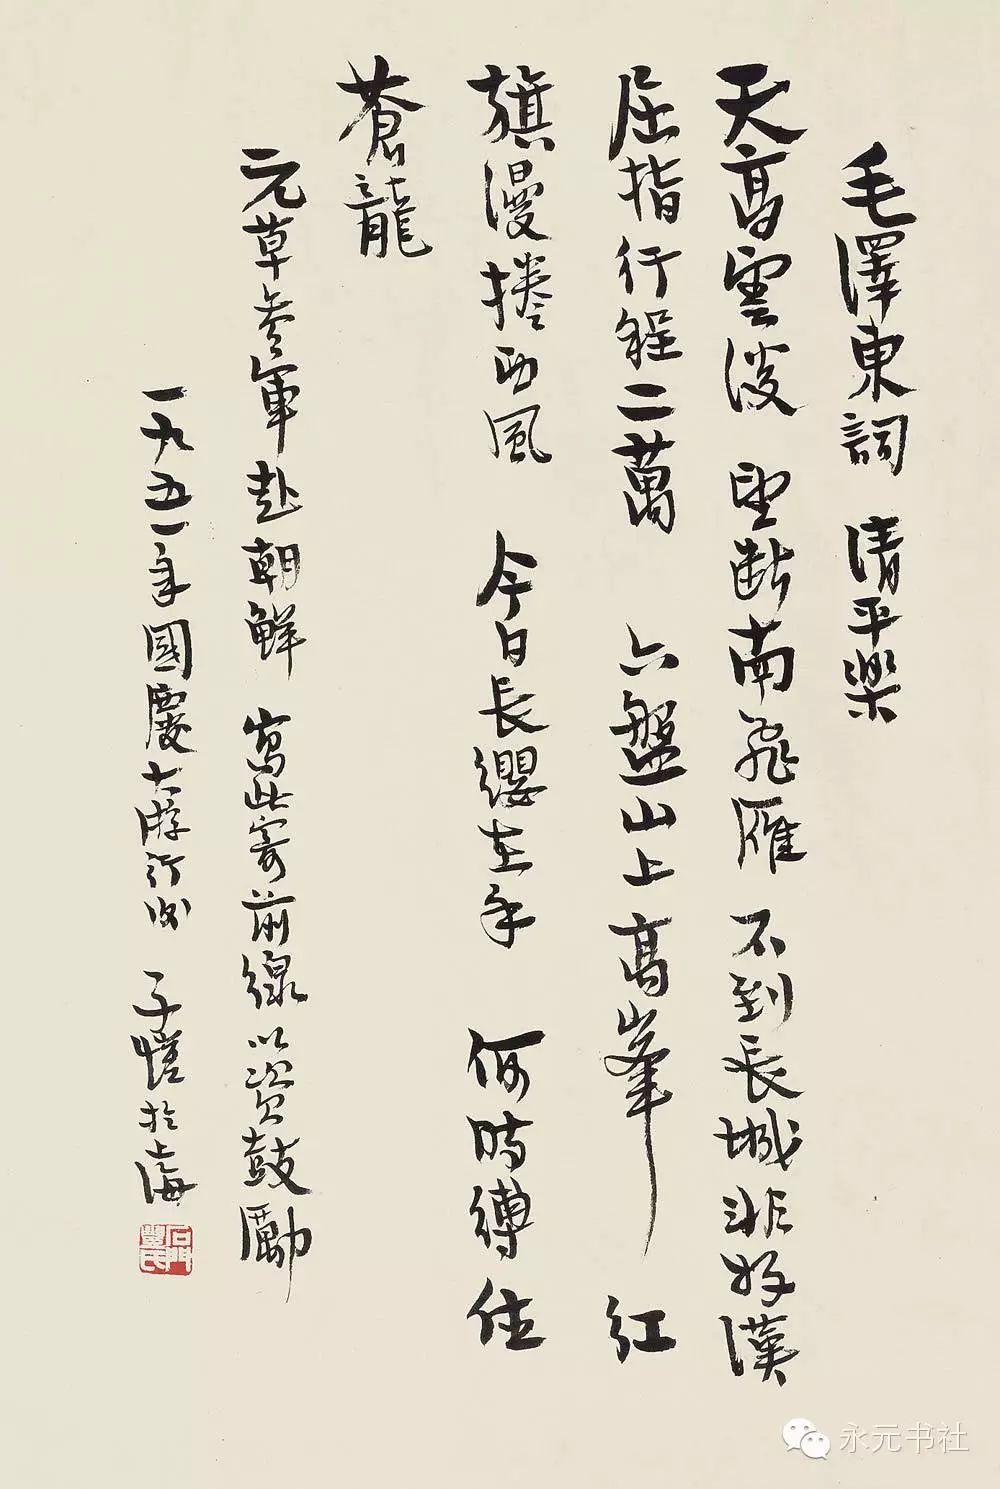 毛澤東詞 清平樂
天高雲淡 望斷南飛雁 不到長城非好漢
屈指行程二萬 六盤山上高峯 紅
旗漫捲西風 今日長纓在手 何時縛住
蒼龍
元草參軍赴朝鮮 寫此寄前線以資鼓勵
一九五一年國慶大游行後 子愷於上海
石門豐氏
永元书社